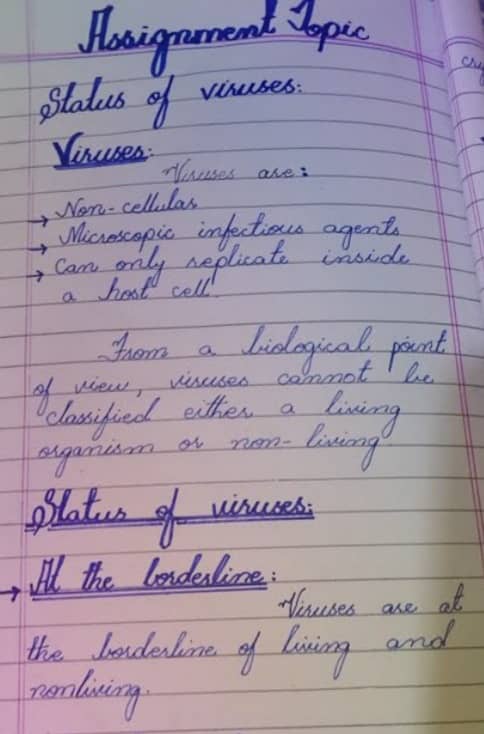 Assignment Topic
Status of viruses:
Viruses:
Viruses are:
→ Non-cellular
→ Microscopic infectious agents
→ Can only replicate inside
a host cell.
From a biological point
of view, viruses cannot be
classified either a living
organism or non-living
Status of viruses:
→ At the borderline:
Viruses are at
the borderline of living and
nonliving.